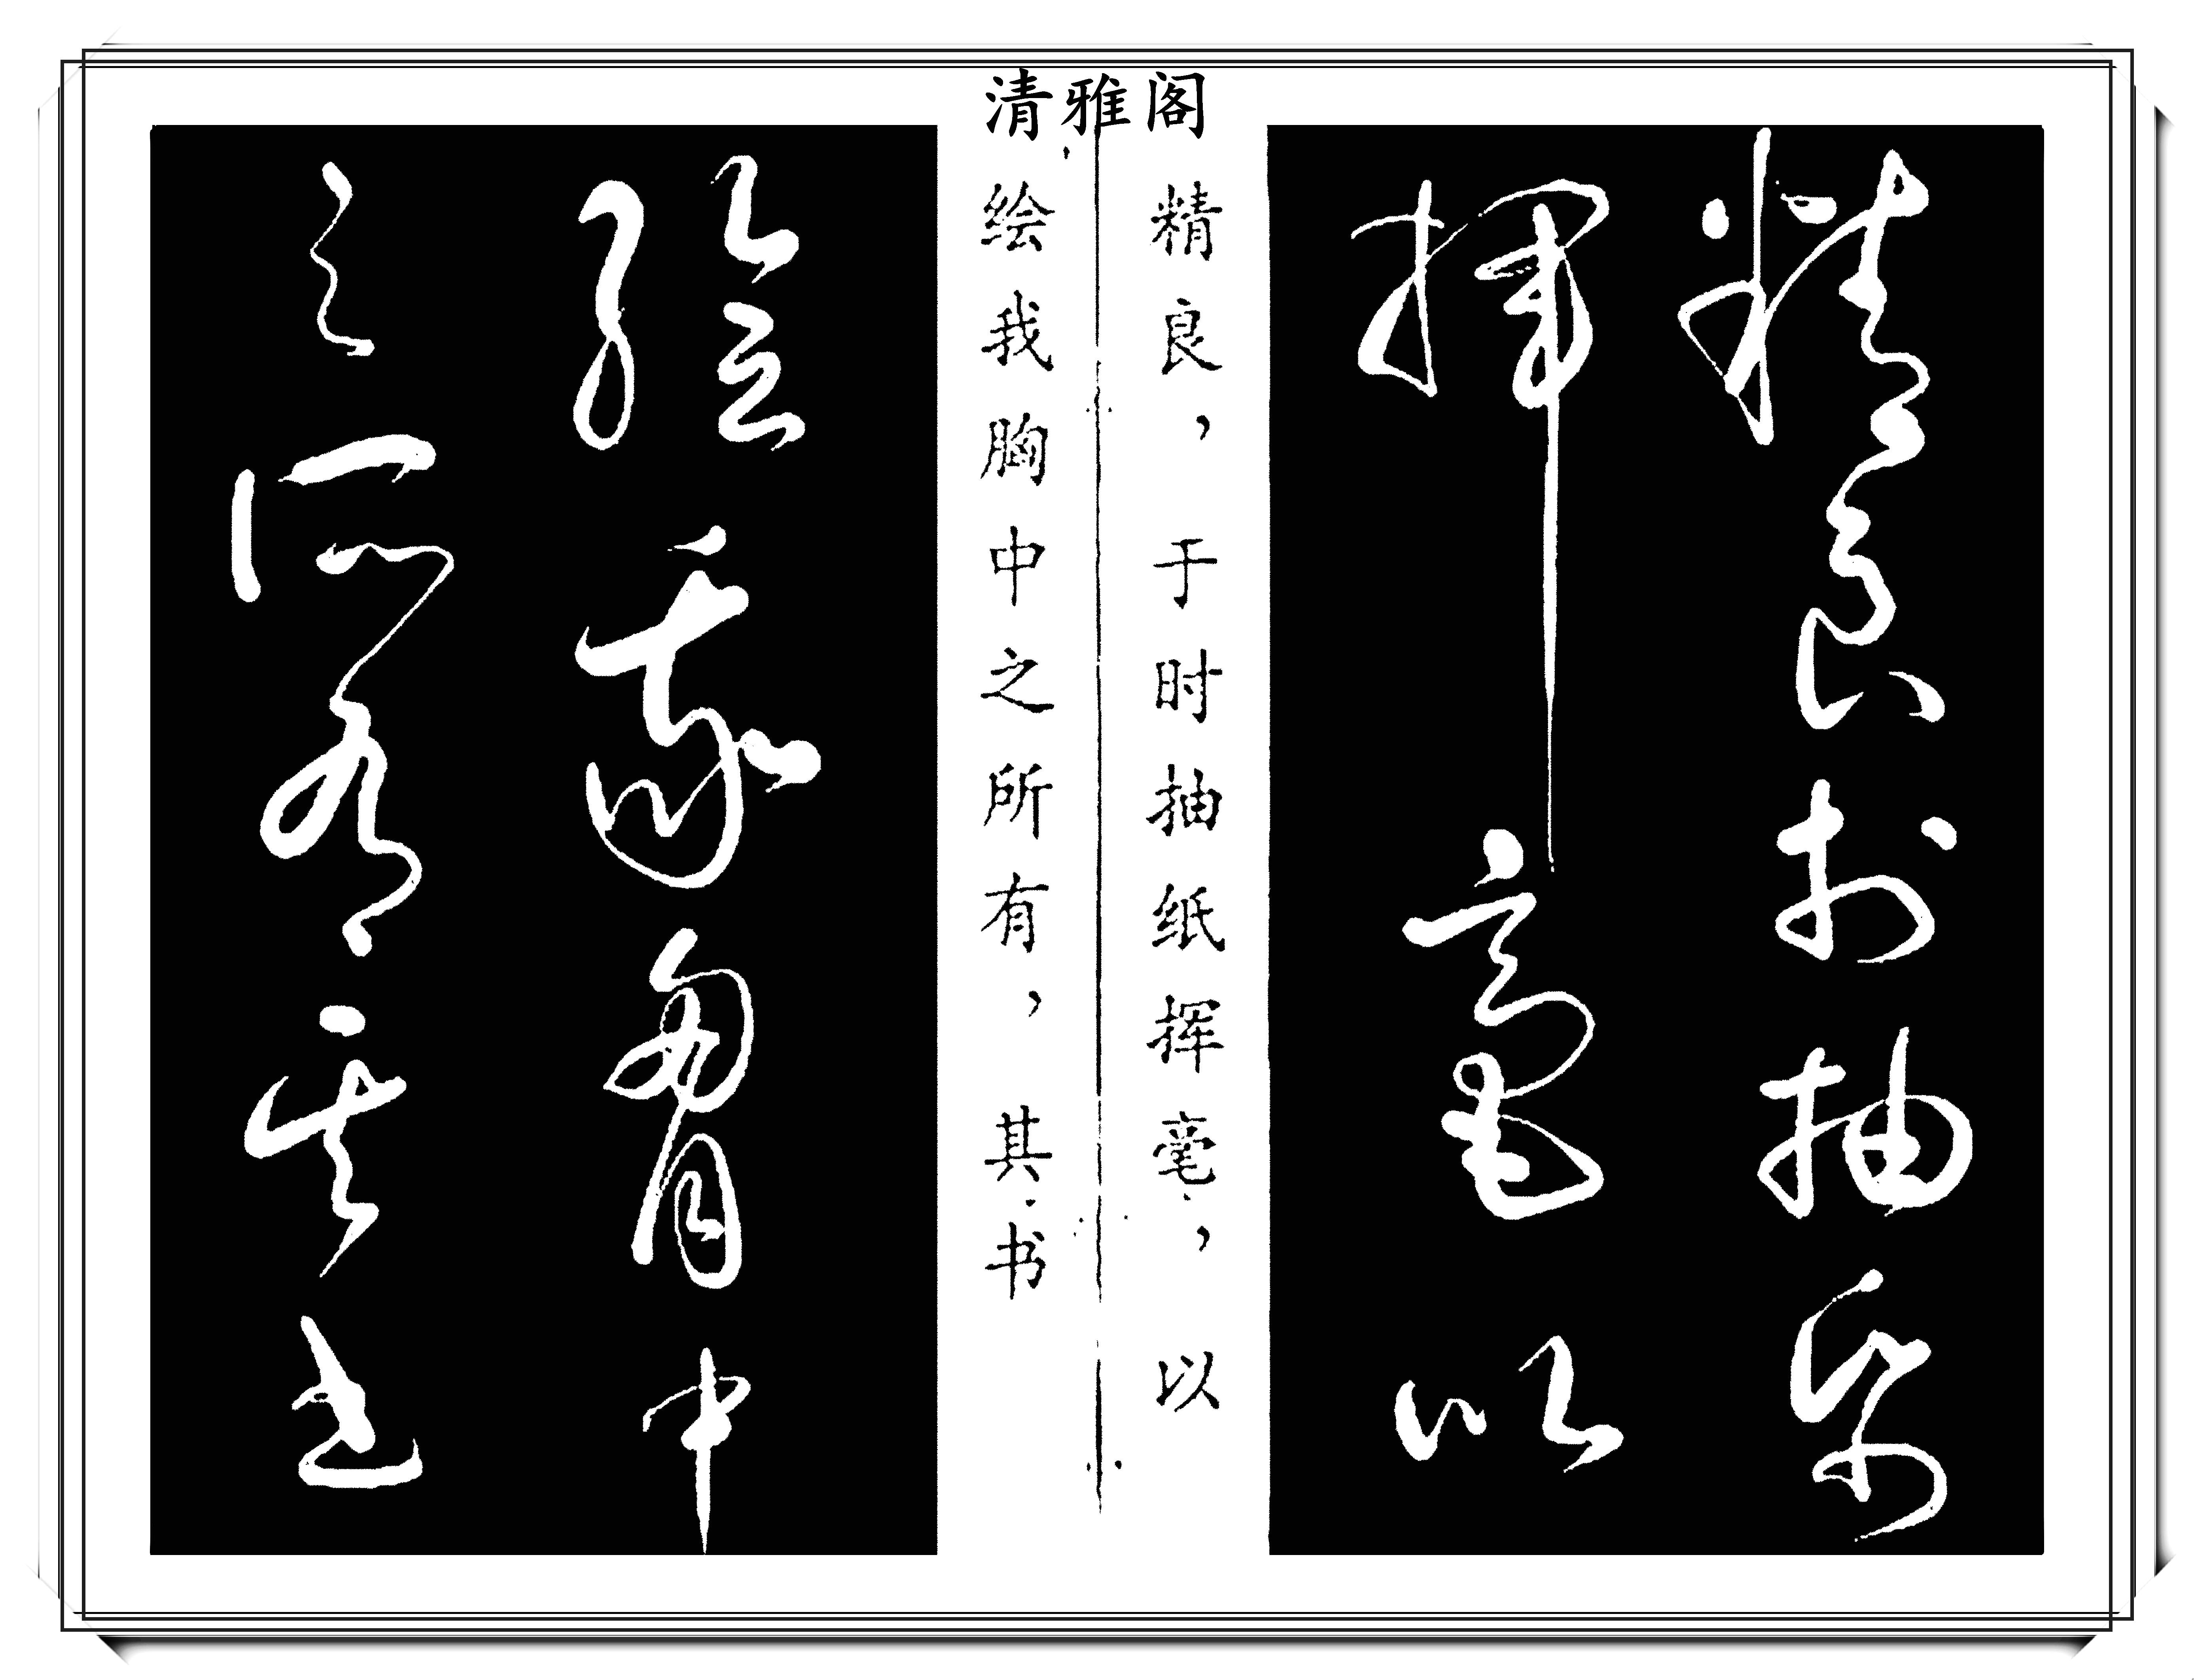 清雅阁
精良抽紙
揮毫以
精良，于时抽纸挥毫，以
绘我胸中之所有，其书
繪我胷中
之所有其書